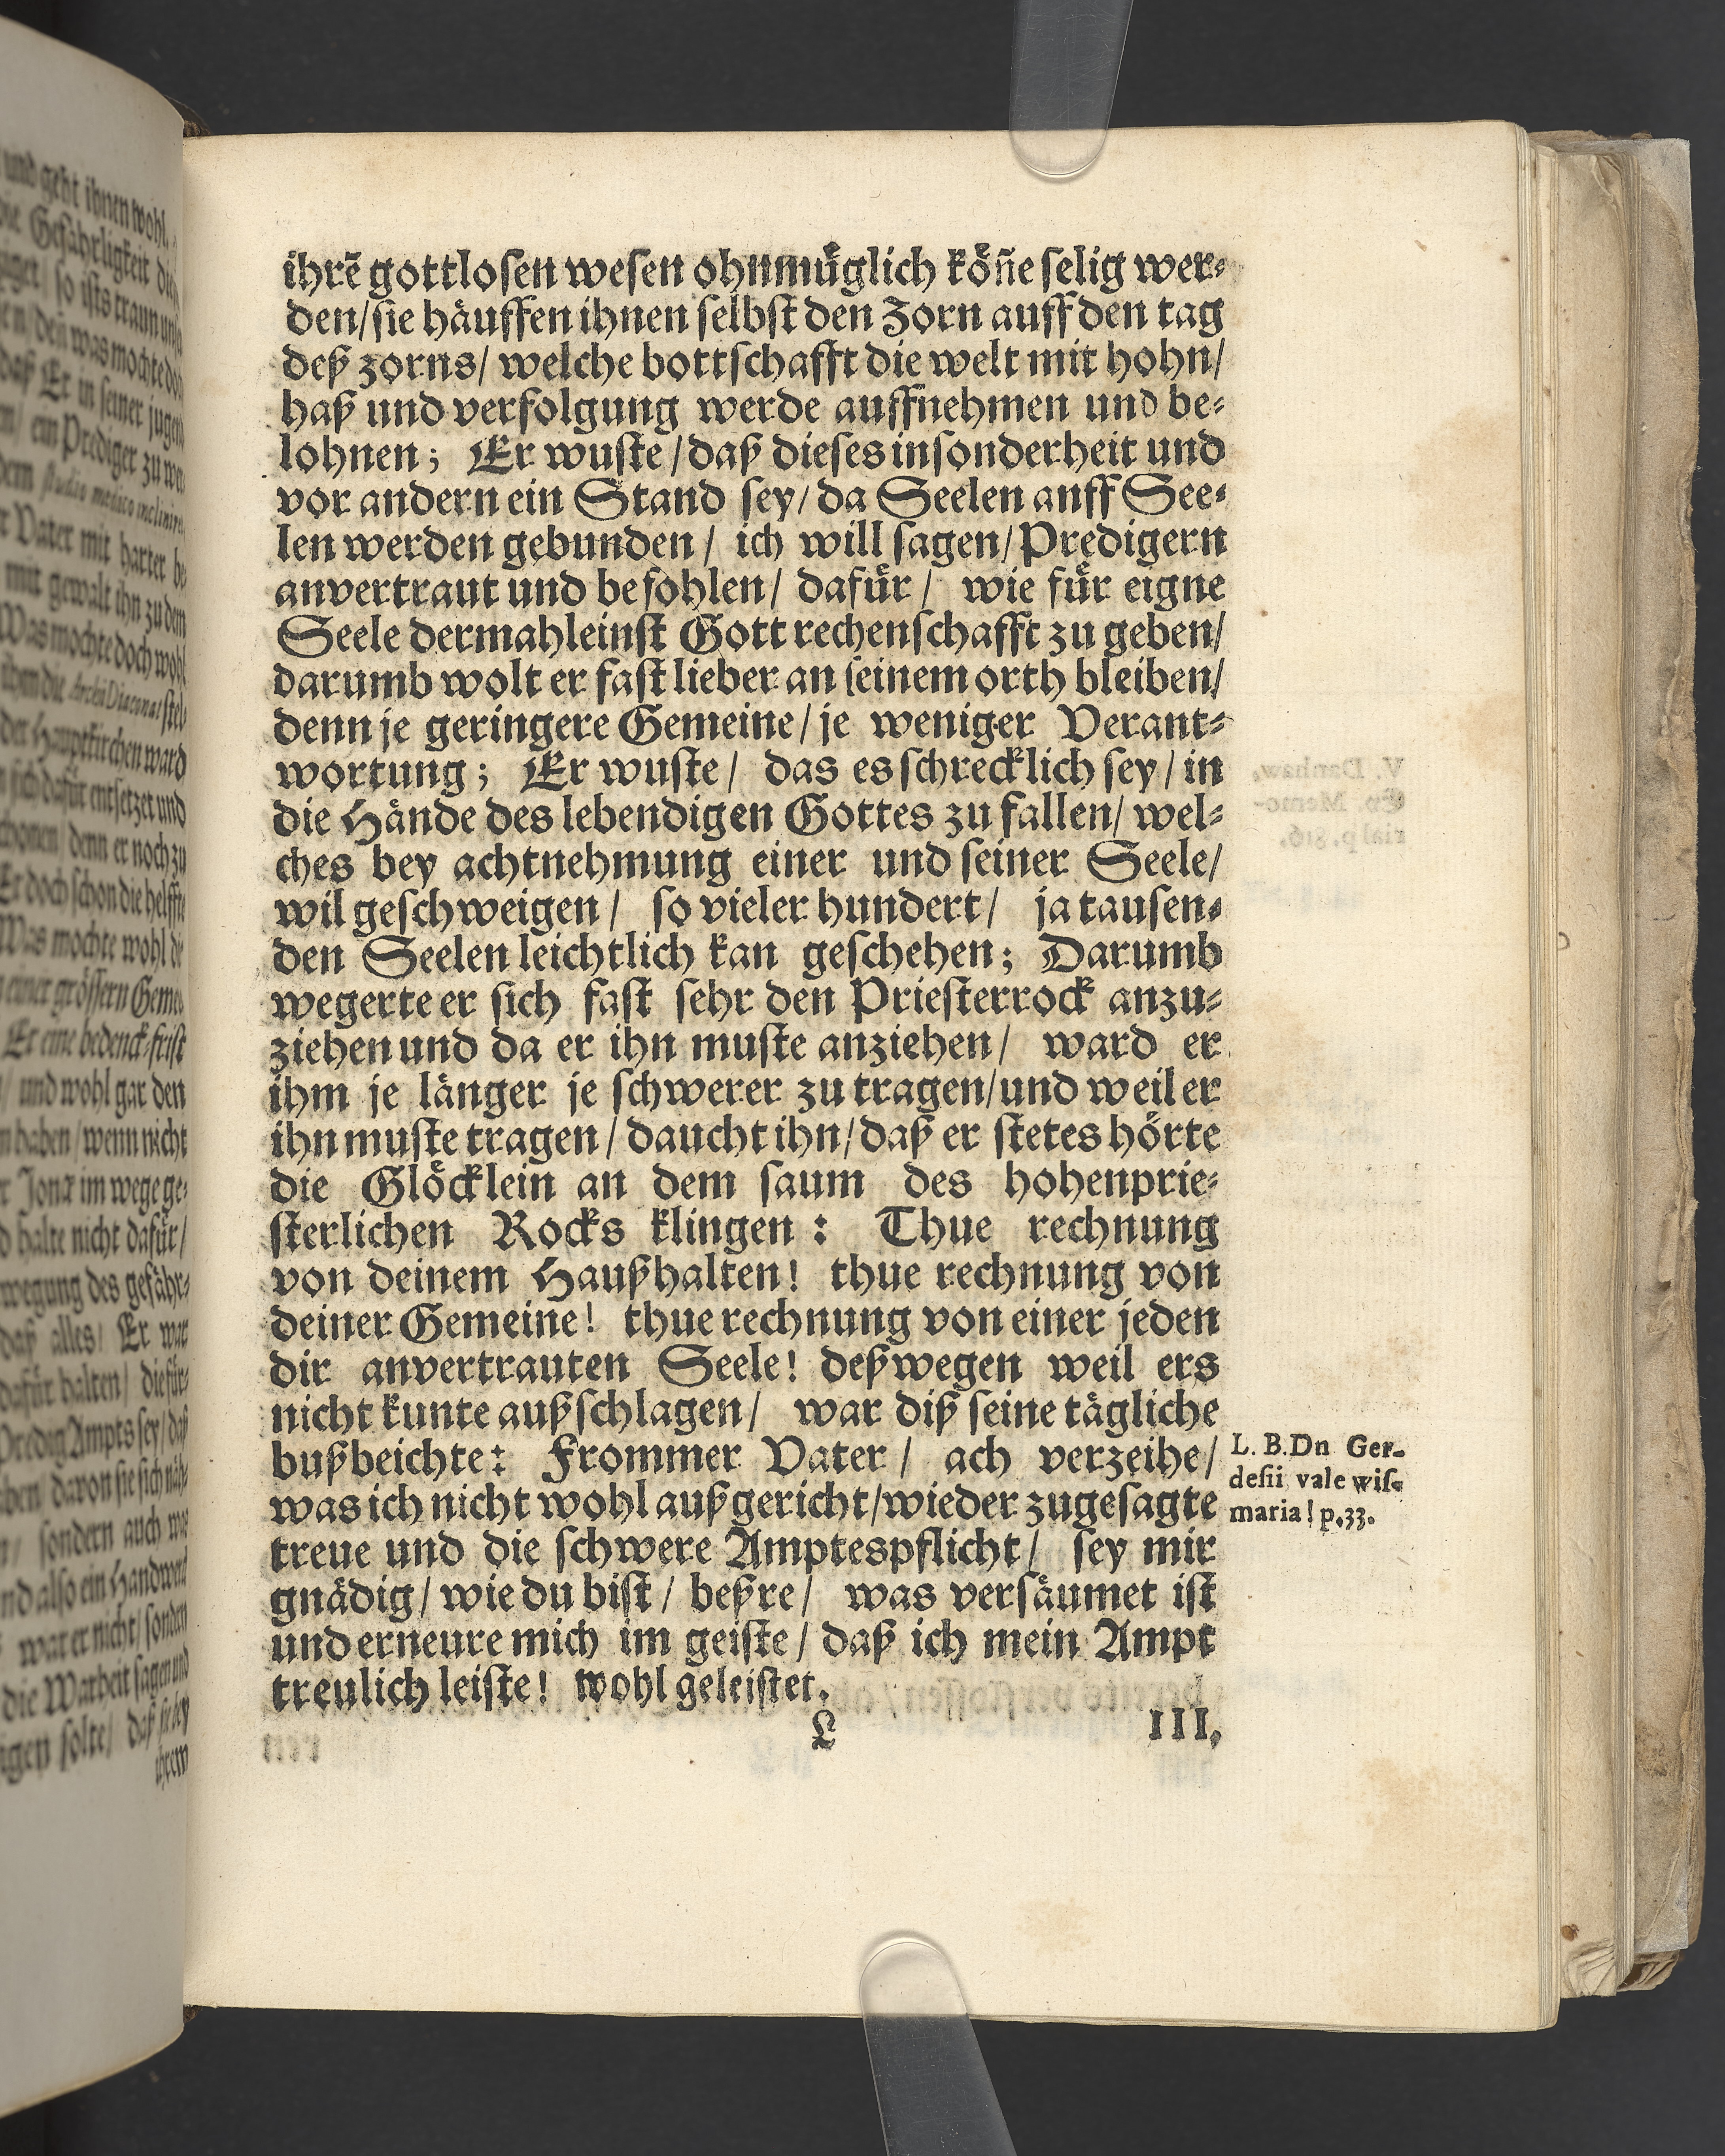 ihrẽ gottloſen weſen ohnmuͤglich koͤñe ſelig wer⸗
den/ſie haͤuffen ihnen ſelbſt den Zorn auff den tag
deß zorns/ welche bottſchafft die welt mit hohn/
haß und verfolgung werde auffnehmen und be⸗
lohnen; Er wuſte/daß dieſes inſonderheit und
vor andern ein Stand ſey/ da Seelen anff See⸗
len werden gebunden/ ich will ſagen/Predigern
anvertraut und befohlen/ dafuͤr/ wie fuͤr eigne
Seele dermahleinſt Gott rechenſchafft zu geben/
darumb wolt er faſt lieber an ſeinem orth bleiben/
denn je geringere Gemeine/je weniger Verant⸗
wortung; Er wuſte/ das es ſchrecklich ſey/in
die Haͤnde des lebendigen Gottes zu fallen/ wel⸗
ches bey achtnehmung einer und ſeiner Seele/
wil geſchweigen/ ſo vieler hundert/ ja tauſen⸗
den Seelen leichtlich kan geſchehen; Darumb
wegerte er ſich faſt ſehr den Prieſterrock anzu⸗
ziehen und da er ihn muſte anziehen/ ward er
ihm je laͤnger je ſchwerer zu tragen/und weil er
ihn muſte tragen/daucht ihn/daß er ſtetes hoͤrte
die Gloͤcklein an dem ſaum des hohenprie⸗
ſterlichen Rocks klingen: Thue rechnung
von deinem Haußhalten! thue rechnung von
deiner Gemeine! thue rechnung von einer jeden
dir anvertrauten Seele! deßwegen weil ers
nicht kunte außſchlagen/ war diß ſeine taͤgliche
bußbeichte: Frommer Vater/ ach verzeihe/
was ich nicht wohl außgericht/wieder zugeſagte
treue und die ſchwere Amptespflicht/ ſey mir
gnaͤdig/wie du biſt/ beßre/ was verſaͤumet iſt
und erneure mich im geiſte/daß ich mein Ampt
treulich leiſte! wohl geleiſtet.
L. B. Dn Ger-
deſii vale wiſ-
maria! p.33.
L
III.